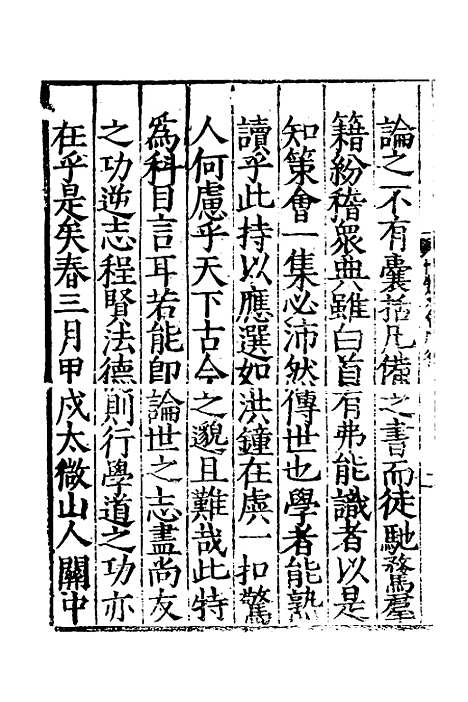 論之不有囊括凡備之書而徒馳騖羣
籍紛稽衆典雖白首有弗能識者以是
知策會一集必沛然傳世也學者能熟
讀乎此持以應選如洪鐘在虡一扣驚
人何慮乎天下古今之邈且難哉此特
爲科目言耳若能即論世之志盡尚友
之功逆志程賢法德則行學道之功亦
在乎是矣春三月甲戍太微山人關中